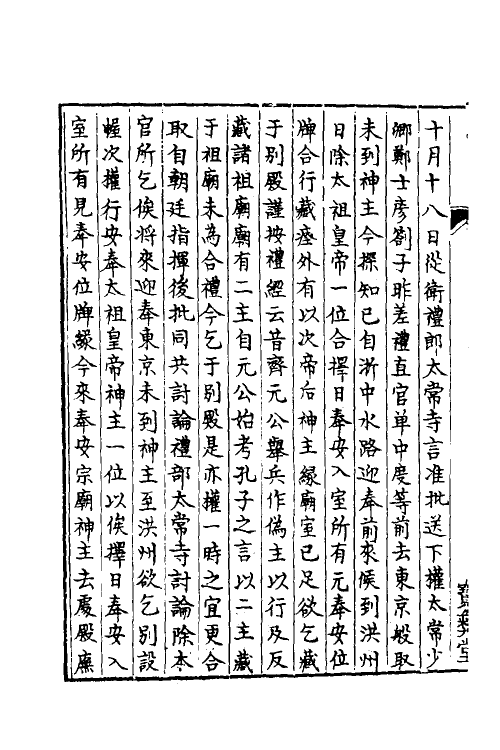 十月十八日從衛禮郎太常寺言准批送下權太常少
卿鄭士彥劄子昨差禮直官单中度等前去東京般取
未到神主今探知已自浙中水路迎奉前來候到洪州
日除太祖皇帝一位合擇日奉安入室所有元奉安位
牌合行藏瘞外有以次帝后神主緣廟室已足欲乞藏
于别殿謹按禮經云昔齊元公舉兵作偽主以行及反
藏諸祖廟廟有二主自元公始考孔子之言以二主藏
于祖廟未為合禮今乞于别殿是亦權一時之宜更合
取自朝廷指揮後批同共討論禮部太常寺討論除本
官所乞俟將來迎奉東京未到神主至洪州欲乞别設
幄次權行安奉太祖皇帝神主一位以俟擇日奉安入
室所有見奉安位牌緣今來奉安宗廟神主去處殿廡